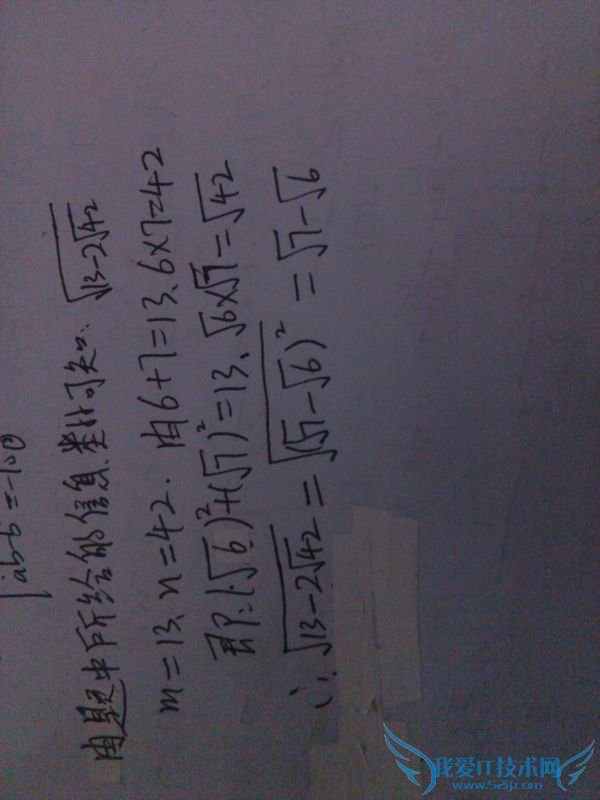 ab-b=-10
由题中所给的信息类比可知: √(13-2√42)
m=13、n=42. 由6+7=13、6×7=42
即:(√6)²+(√7)²=13、√6×√7=√42
∴ √(13-2√42) = √((√7-√6)²) = √7-√6
我爱IT技术网
www.52ij.com